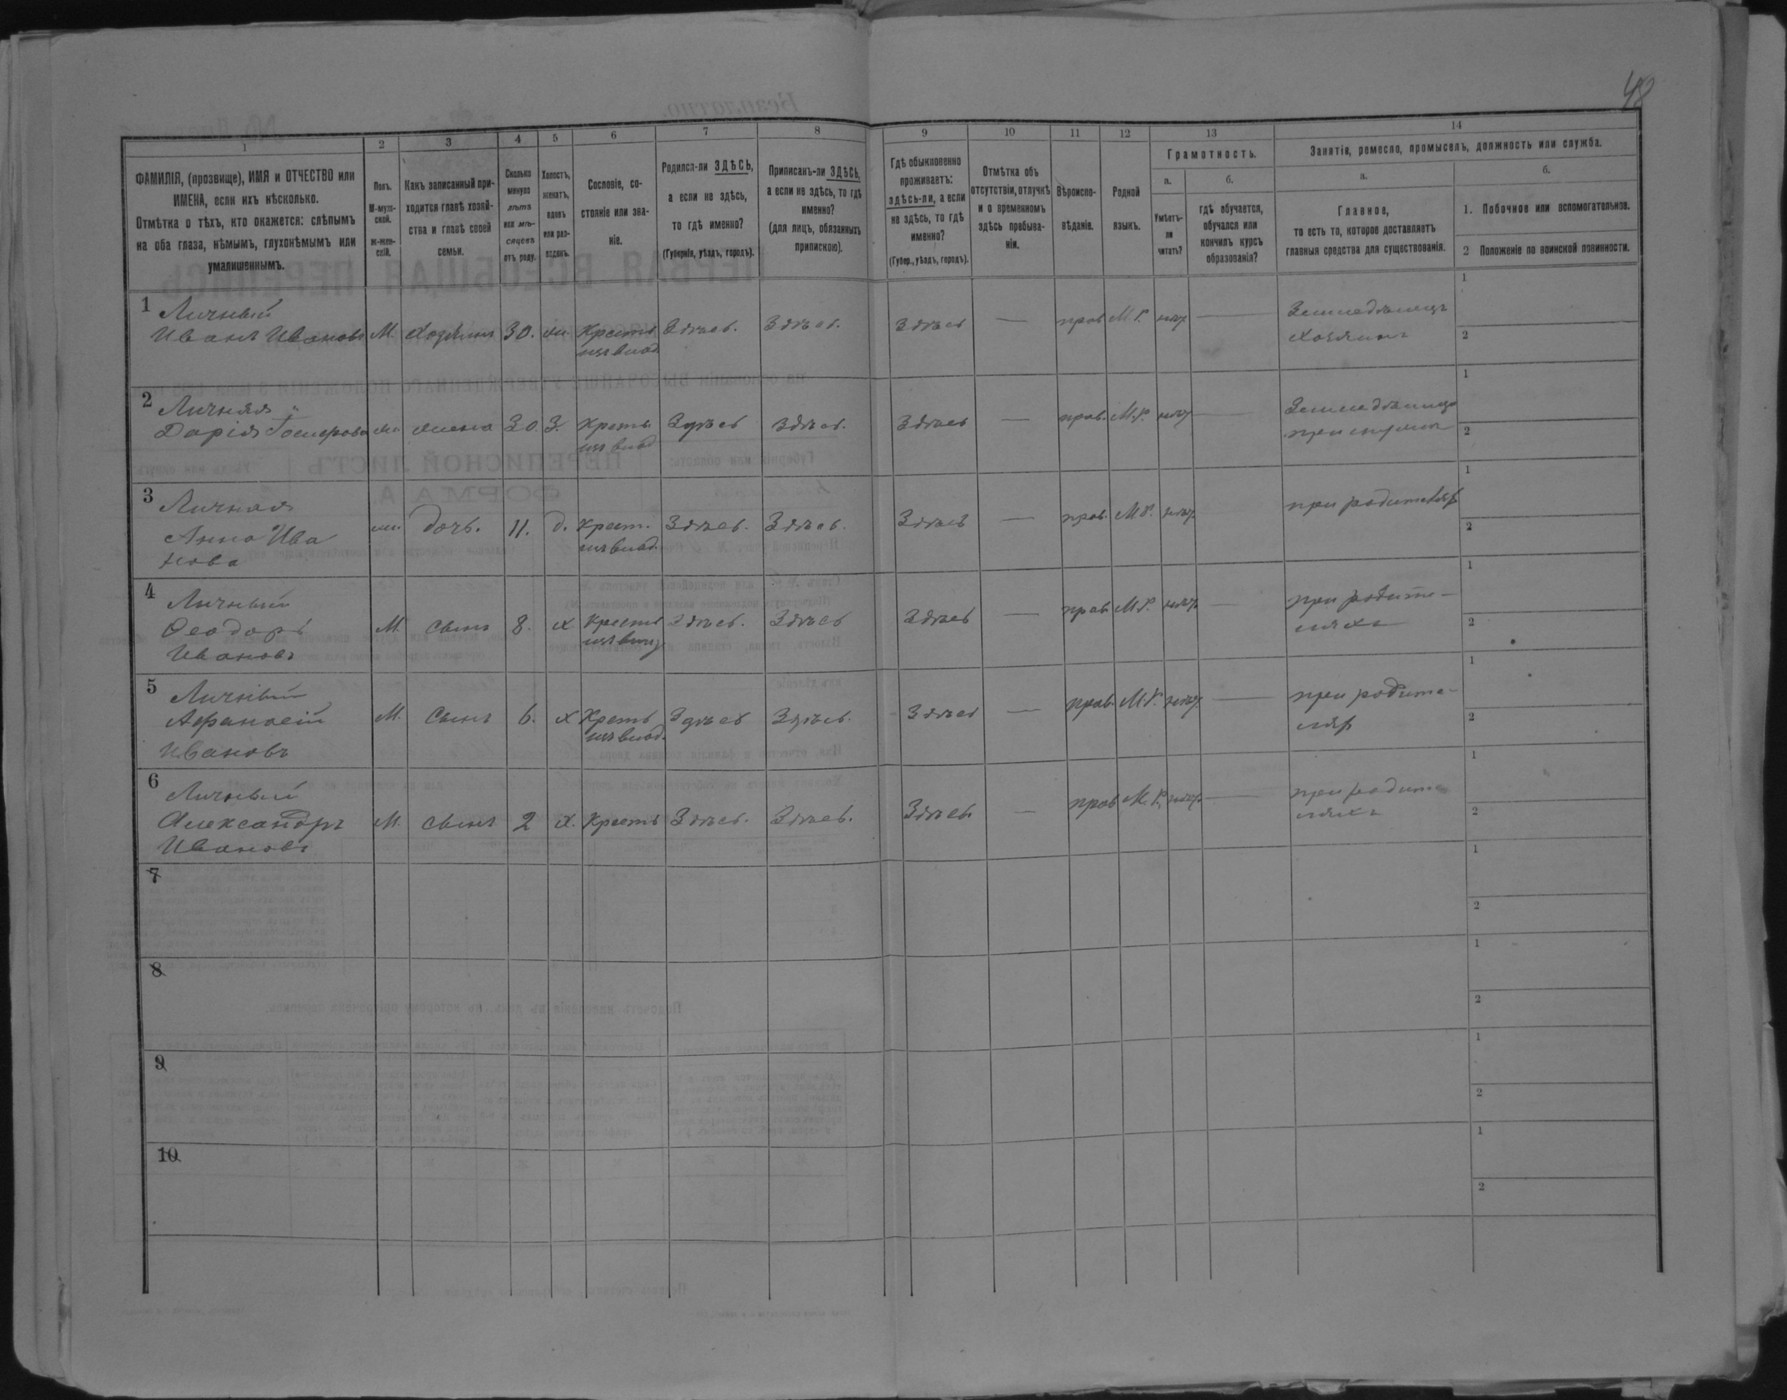 48
1 2 3 4 5 6 7 8 9 10 11 12 13 14
ФАМИЛІЯ, (прозвище), ИМЯ и ОТЧЕСТВО или ИМЕНА, если ихъ нѣсколько.
Отмѣтка о тѣхъ, кто окажется: слѣпымъ на оба глаза, нѣмымъ, глухонѣмымъ или умалишеннымъ.
Полъ.
М-мужской.
ж-женскій.
Какъ записанный приходится главѣ хозяйства и главѣ своей семьи.
Сколько минуло лѣтъ или мѣсяцевъ отъ роду.
Холостъ, женатъ, вдовъ или разведенъ.
Сословіе, состояніе или званіе.
Родился-ли ЗДѢСЬ, а если не здѣсь, то гдѣ именно?
(Губернія, уѣздъ, городъ).
Приписанъ-ли ЗДѢСЬ, а если не здѣсь, то гдѣ именно?
(для лицъ, обязанныхъ припискою).
Гдѣ обыкновенно проживаетъ: здѣсь-ли, а если не здѣсь, то гдѣ именно?
(Губер., уѣздъ, городъ).
Отмѣтка объ отсутствіи, отлучкѣ и о временномъ здѣсь пребываніи.
Вѣроисповѣданіе.
Родной языкъ.
Грамотность.
а.
Умѣетъ-ли читать?
б.
гдѣ обучается, обучался или кончилъ курсъ образованія?
Занятія, ремесло, промыселъ, должность или служба.
а.
Главное,
то есть то, которое доставляетъ главныя средства для существованія.
б.
1. Побочное или вспомогательное.
2 Положеніе по воинской повинности.
1 Личный
Иванъ Ивановъ М. Хозяинъ 30. жи. Крестъ. изъ влад. Здѣсь. Здѣсь. Здѣсь — прав. М.Р. нѣтъ — Земледѣлецъ хозяинъ 1 2
2 Личная
Дарія жи жена 30 З. Крестъ. изъ влад Здѣсь Здѣсь. Здѣсь — прав. М.Р. нѣтъ — при мужѣ 1 2
3 Личная
Анна Ива
нова жи. дочь. 11. д. Крест. изъ влад. Здѣсь. Здѣсь. Здѣсь — прав. М.Р. нѣтъ при родителяхъ 1 2
4 Личный
Ѳеодоръ
Ивановъ М. сынъ 8. Х Крестъ изъ влад Здѣсь. Здѣсь Здѣсь — прав. М.Р. нѣтъ — при родите-
ляхъ 1 2
5 Личный
Афанасій
Ивановъ М. сынъ 6. Х Крестъ изъ влад. Здѣсь Здѣсь. Здѣсь — прав. М.Р. нѣтъ — при родите-
ляхъ 1 2
6 Личный
Александръ
Ивановъ М. сынъ 2 Х. Крестъ Здѣсь. Здѣсь. Здѣсь — прав М.Р. нѣтъ — при родите
ляхъ 1 2
7 1 2
8 1 2
9 1 2
10 1 2